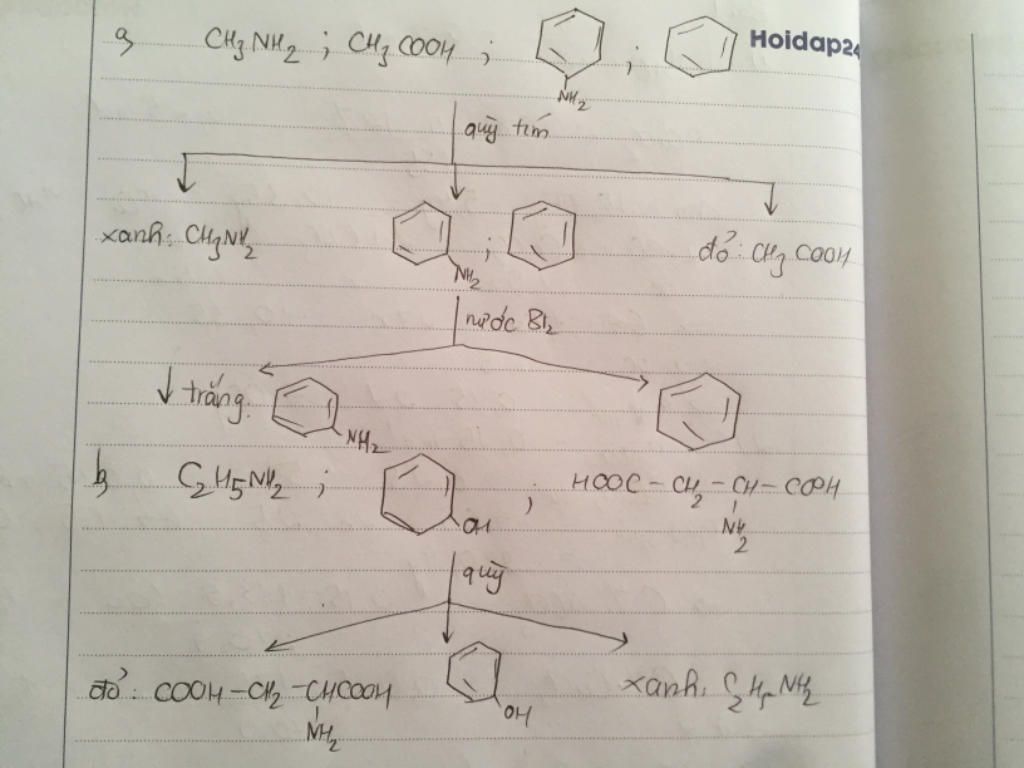 a, CH3NH2 ; CH3COOH ; NH2 ; Hoidap24
quỳ tím
xanh: CH3NH2 ; NH2 đỏ: CH3COOH
nước Br2
↓ trắng: NH2
b, C2H5NH2 ; OH ; HOOC-CH2-CH-COOH
NH2
quỳ
đỏ: COOH-CH2-CHCOOH OH xanh: C2H5NH2
NH2